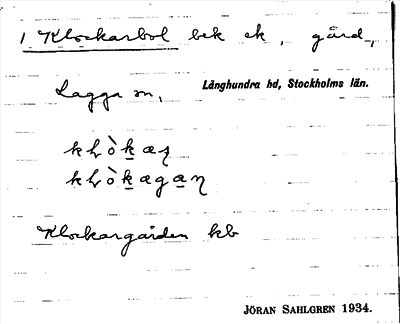 1 Klockarbol bek ek, gård,
Lagga sn,
Långhundra hd, Stockholms län.
Klockargården kb
JÖRAN SAHLGREN 1934.